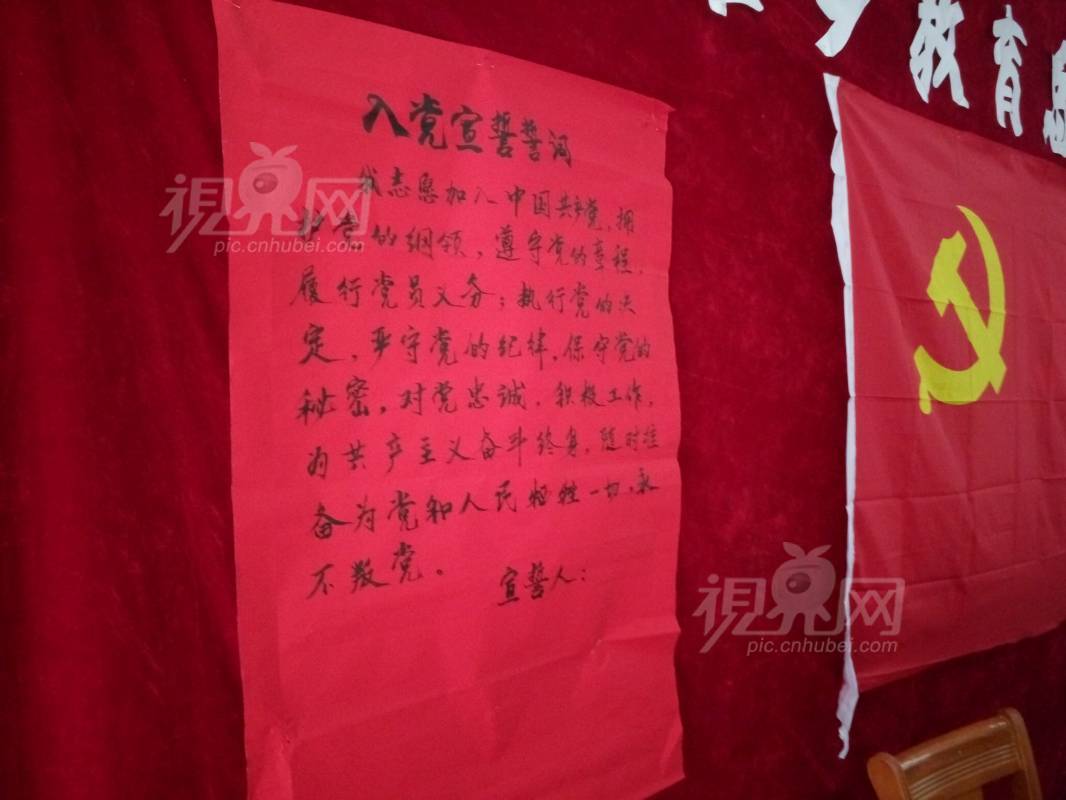 入党宣誓誓词
我志愿加入中国共产党，拥
护党的纲领，遵守党的章程，
履行党员义务；执行党的决
定，严守党的纪律，保守党的
秘密，对党忠诚，积极工作，
为共产主义奋斗终身，随时准
备为党和人民牺牲一切，永
不叛党。
宣誓人：
教育
視界网
pic.cnhubei.com
視界网
pic.cnhubei.com